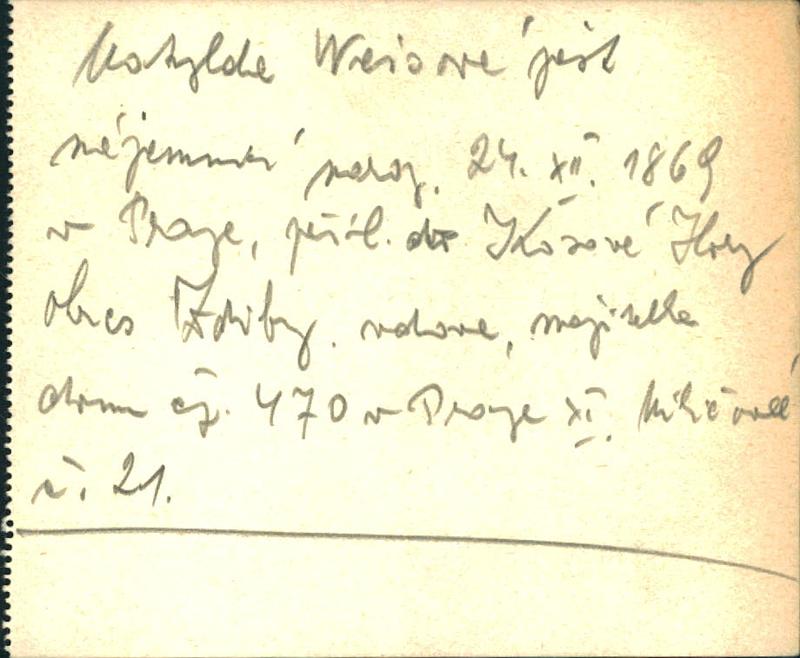 Matylda Weisová jest
nájemnicí naroz. 24. XII. 1869
v Praze, přísl. do Kosové Hory
okres Zdiby. vdova, majitelka
domu čp. 470 v Praze XI. Miličova
č. 21.